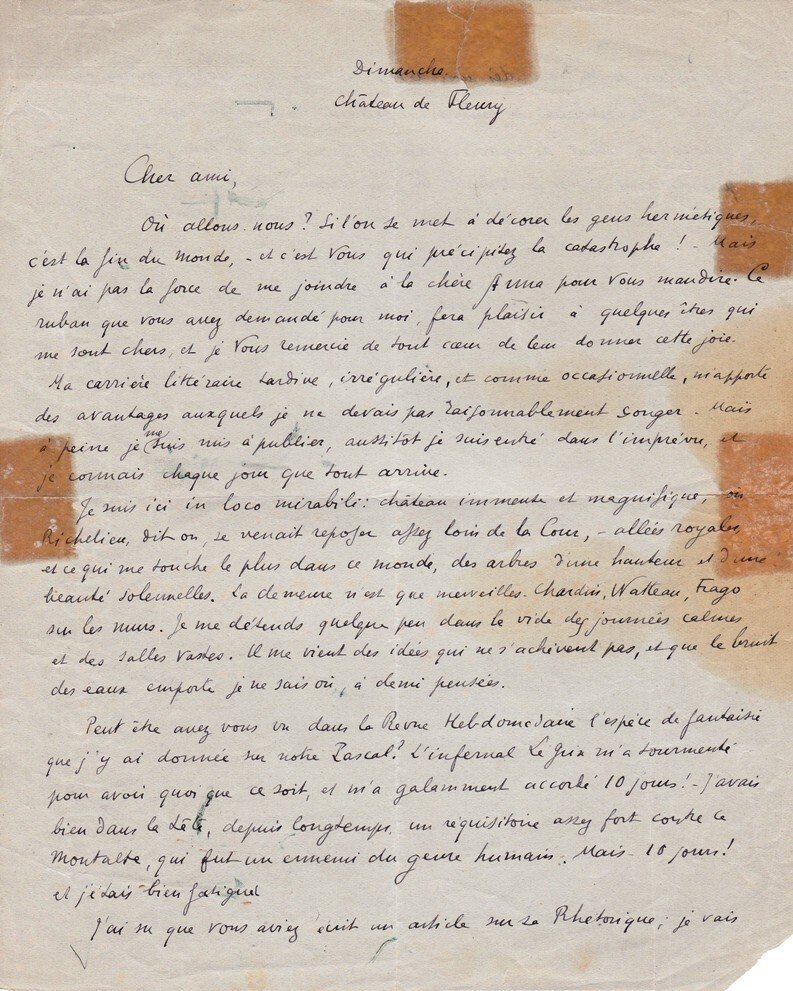 Dimanche.
Château de Fleury
Cher ami,
Où allons-nous ? Si l'on se met à décorer les gens hermétiques,
c'est la fin du monde, - et c'est Vous qui précipitez la catastrophe ! - Mais
je n'ai pas la force de me joindre à la chère Anna pour vous maudire. Ce
ruban que vous avez demandé pour moi, fera plaisir à quelques êtres qui
me sont chers, et je Vous remercie de tout cœur de leur donner cette joie.
Ma carrière littéraire tardive, irrégulière, et comme occasionnelle, m'apporte
des avantages auxquels je ne devais pas raisonnablement songer - Mais
à peine je me suis mis à publier, aussitôt je suis entré dans l'imprévu, et
je connais chaque jour que tout arrive.
Je suis ici in loco mirabili : château immense et magnifique, où
Richelieu, dit on, se venait reposer assez loin de la Cour, - allées royales,
et ce qui me touche le plus dans ce monde, des arbres d'une hauteur et d'une
beauté solennelles. La demeure n'est que merveilles. Chardin, Watteau, Frago
sur les murs. Je me détends quelque peu dans le vide des journées calmes
et des salles vastes. Il me vient des idées qui ne s'achèvent pas, et que le bruit
des eaux emporte je ne sais où, à demi pensées.
Peut être avez vous vu dans la Revue Hebdomadaire l'espèce de fantaisie
que j'y ai donnée sur notre Pascal ? L'infernal Le Grix m'a tourmenté
pour avoir quoi que ce soit, et m'a galamment accordé 10 jours ! - J'avais
bien dans la tête, depuis longtemps, un réquisitoire assez fort contre ce
Montalte, qui fut un ennemi du genre humain. Mais - 10 jours !
et j'étais bien fatigué
J'ai su que vous aviez écrit un article sur la Rhétorique ; je vais